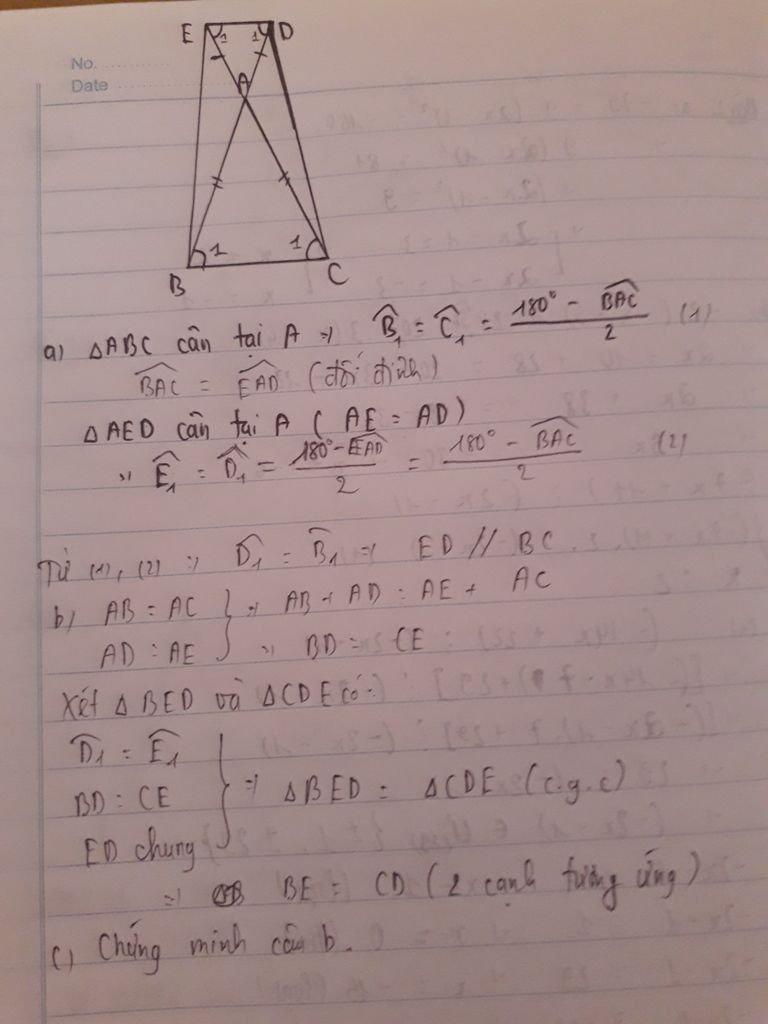 No.
Date
E 1 1 D
A
B 1 1 C
a) △ABC cân tại A => B̂₁ = Ĉ₁ = (180° - B̂AC)/2 (1)
B̂AC = ÊAD (đối đỉnh)
△AED cân tại A ( AE = AD)
=> Ê₁ = D̂₁ = (180° - ÊAD)/2 = (180° - B̂AC)/2 (2)
Từ (1), (2) => D̂₁ = B̂₁ => ED // BC
b) AB = AC } => AB + AD = AE + AC
AD = AE } => BD = CE
Xét △BED và △CDE có:
D̂₁ = Ê₁
BD = CE } => △BED = △CDE (c.g.c)
ED chung
=> BE = CD ( 2 cạnh tương ứng)
c) Chứng minh câu b.